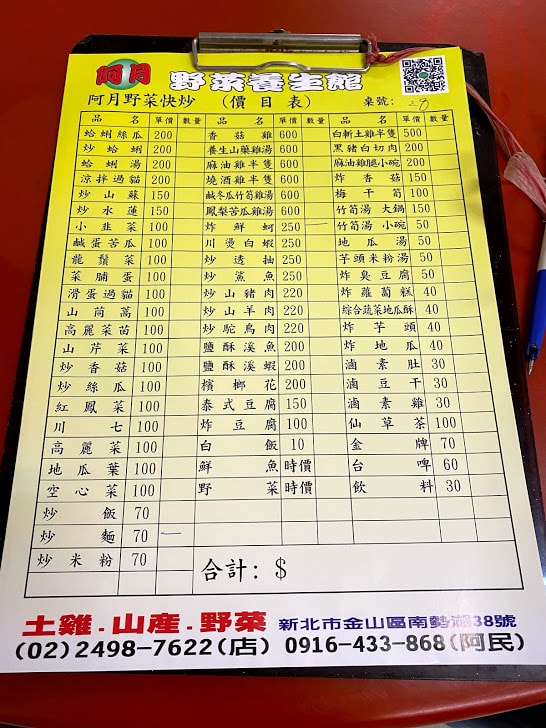 阿月 野菜養生館
阿月野菜快炒 (價目表) 桌號:
品名 單價 數量 品名 單價 數量 品名 單價 數量
蛤蜊絲瓜 200 香菇雞 600 白斬土雞半隻 500
炒蛤蜊 200 養生山藥雞湯 600 黑豬白切肉 200
蛤蜊湯 200 麻油雞半隻 600 麻油雞腿小碗 200
涼拌過貓 200 燒酒雞半隻 600 炸香菇 150
炒山蘇 150 鹹冬瓜竹筍雞湯 600 梅干筍 100
炒水蓮 150 鳳梨苦瓜雞湯 600 竹筍湯大鍋 150
小韭菜 100 炸鮮蚵 250 竹筍湯小碗 50
鹹蛋苦瓜 100 川燙白蝦 250 地瓜湯 50
龍鬚菜 100 炒透抽 250 芋頭米粉湯 50
菜脯蛋 100 炒鯊魚 250 炸臭豆腐 50
滑蛋過貓 100 炒山豬肉 220 炸蘿蔔糕 40
山茼蒿 100 炒山羊肉 220 綜合蔬菜地瓜酥 40
高麗菜苗 100 炒鴕鳥肉 220 炸芋頭 40
山芹菜 100 鹽酥溪魚 200 炸地瓜 40
炒香菇 100 鹽酥溪蝦 200 滷素肚 30
炒絲瓜 100 檳榔花 200 滷豆干 30
紅鳳菜 100 泰式豆腐 150 滷素雞 30
川七 100 炸豆腐 100 仙草茶 100
高麗菜 100 白飯 10 金牌 70
地瓜葉 100 鮮魚 時價 台啤 60
空心菜 100 野菜 時價 飲料 30
炒飯 70
炒麵 70
炒米粉 70
合計: $
土雞.山產.野菜 新北市金山區南勢湖38號
(02)2498-7622(店) 0916-433-868(阿民)